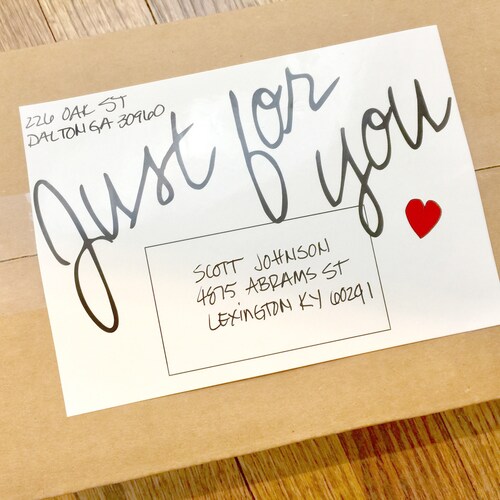 226 OAK ST
DALTON GA 30960
Just for you
SCOTT JOHNSON
4875 ABRAMS ST
LEXINGTON KY 60291